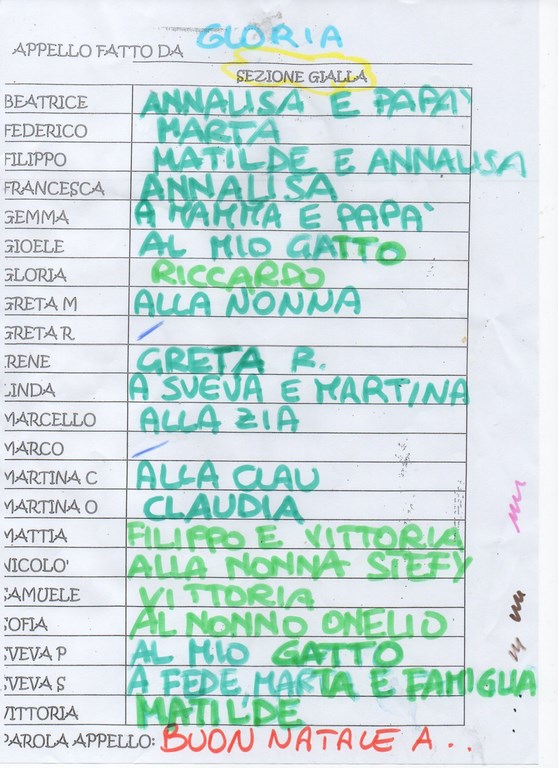 APPELLO FATTO DA GLORIA
SEZIONE GIALLA
BEATRICE ANNALISA E PAPA'
FEDERICO MARTA
FILIPPO MATILDE E ANNALISA
FRANCESCA ANNALISA
GEMMA A MAMMA E PAPA'
GIOELE AL MIO GATTO
GLORIA RICCARDO
GRETA M ALLA NONNA
GRETA R /
IRENE GRETA R.
LINDA A SVEVA E MARTINA
MARCELLO ALLA ZIA
MARCO /
MARTINA C ALLA CLAU
MARTINA O CLAUDIA
MATTIA FILIPPO E VITTORIA
NICOLO' ALLA NONNA STEFY
SAMUELE VITTORIA
SOFIA AL NONNO ONELIO
SVEVA P AL MIO GATTO
SVEVA S A FEDE, MARTA E FAMIGLIA
VITTORIA MATILDE
PAROLA APPELLO: BUON NATALE A...